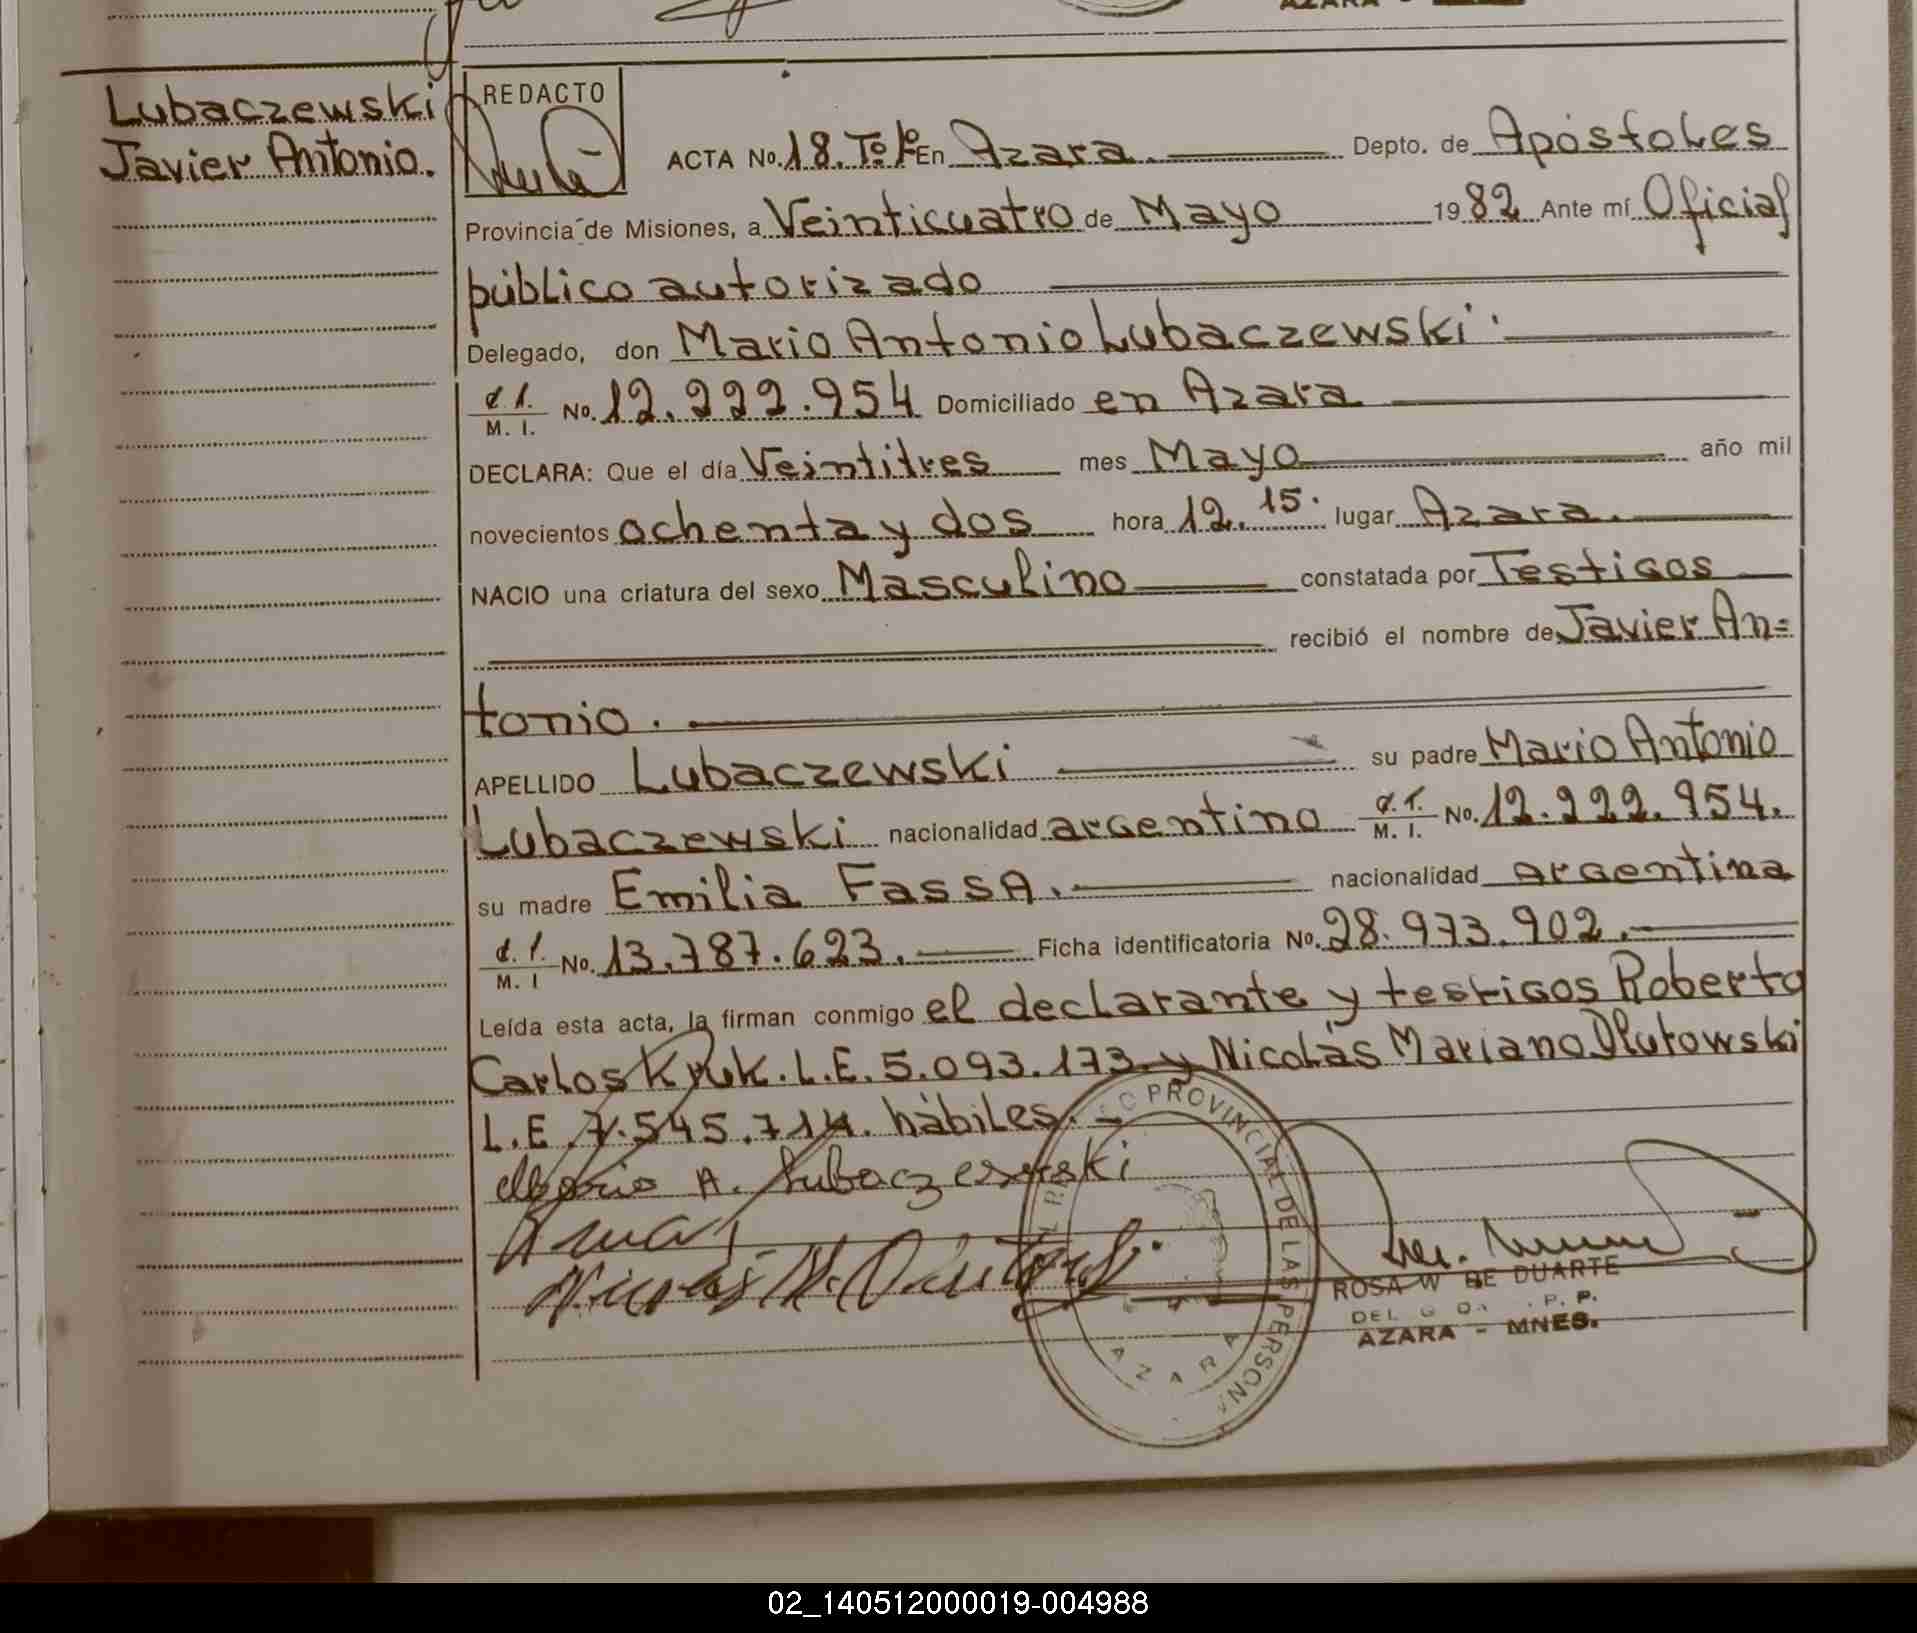 AZARA -
Lubaczewski
Javier Antonio.
REDACTO
ACTA No. 18. Tº 1º En Azara. Depto. de Apóstoles
Provincia de Misiones, a Veinticuatro de Mayo 1982 Ante mí Oficial
público autorizado
Delegado, don Mario Antonio Lubaczewski.
M. I. No. 12.222.954 Domiciliado en Azara
DECLARA: Que el día Veintitres mes Mayo año mil
novecientos ochenta y dos hora 12.15. lugar Azara.
NACIO una criatura del sexo Masculino constatada por Testigos
recibió el nombre de Javier An=
tonio.
APELLIDO Lubaczewski su padre Mario Antonio
Lubaczewski nacionalidad argentino M. I. No. 12.222.954.
su madre Emilia Fassa. nacionalidad argentina
M. I No. 13.787.623. Ficha identificatoria No. 28.973.902.
Leída esta acta, la firman conmigo el declarante y testigos Roberto
Carlos Kruk. L.E. 5.093.173. y Nicolás Mariano Dlutowski
L.E. 7.545.714. hábiles.
Mario A. Lubaczewski
Nicolás M. Dlutowski
PROVINCIAL DE LAS PERSONA
AZARA
ROSA W DE DUARTE
AZARA - MNES.
02_140512000019-004988